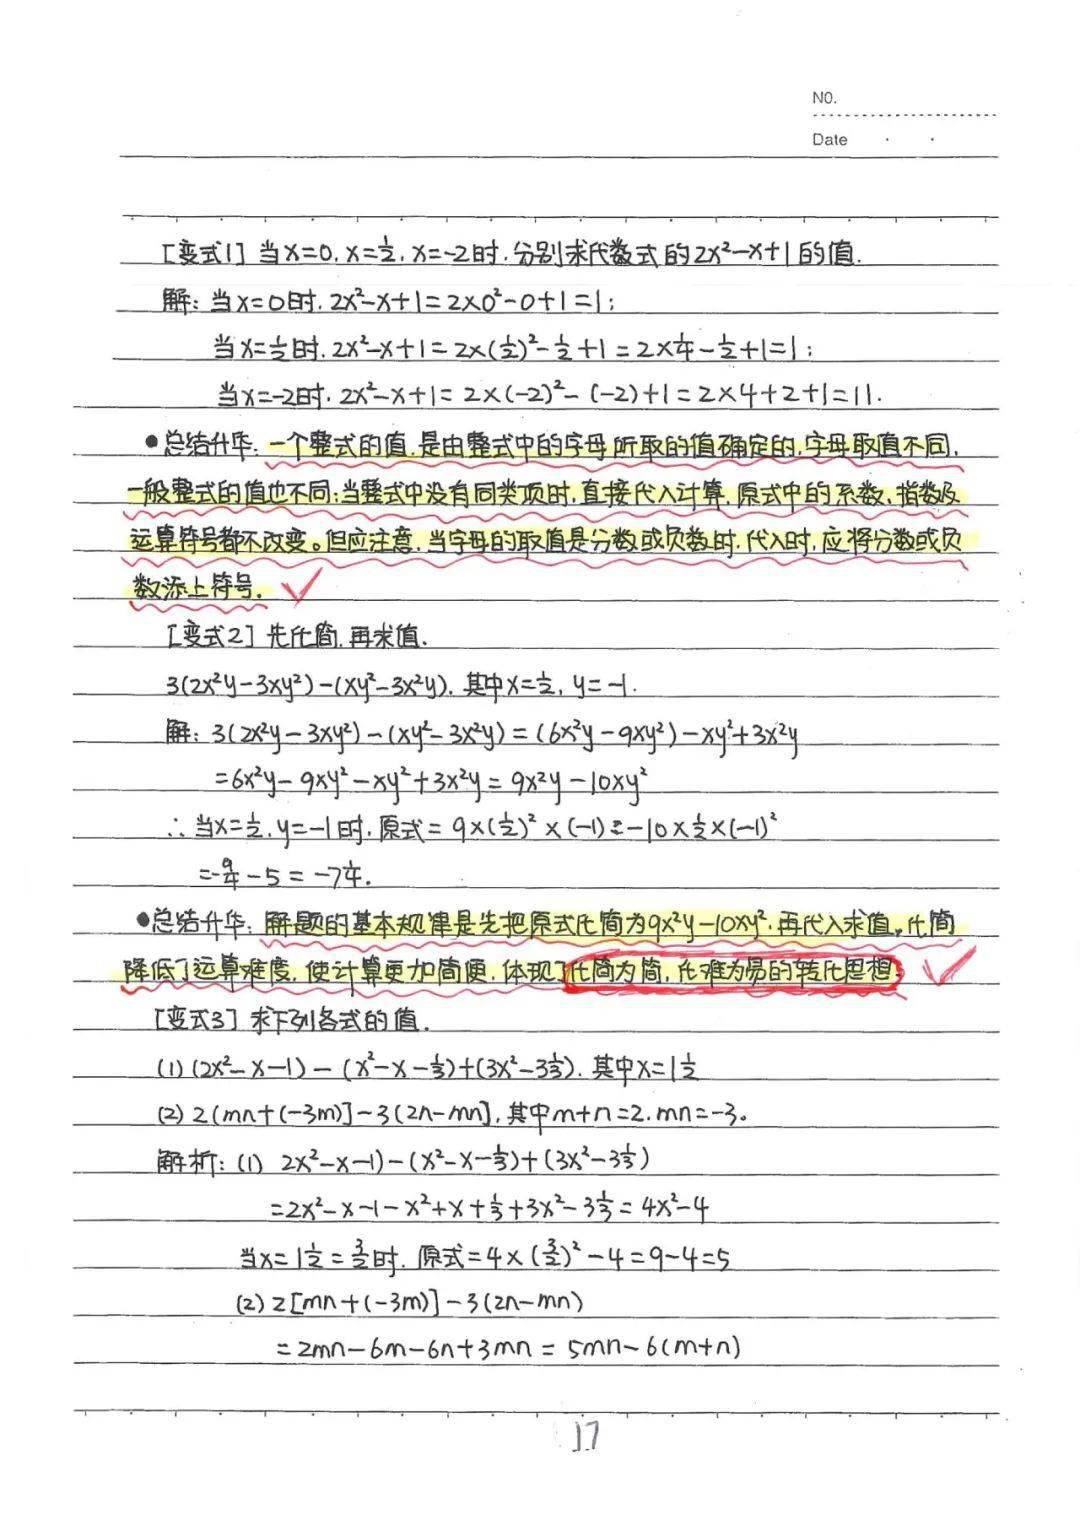 NO.
Date
[变式1] 当x=0, x=½, x=-2时,分别求代数式的2x²-x+1的值.
解: 当x=0时, 2x²-x+1=2×0²-0+1=1;
当x=½时, 2x²-x+1=2×(½)²-½+1=2×¼-½+1=1;
当x=-2时, 2x²-x+1=2×(-2)²-(-2)+1=2×4+2+1=11.
●总结升华: 一个整式的值,是由整式中的字母所取的值确定的,字母取值不同,
一般整式的值也不同;当整式中没有同类项时,直接代入计算,原式中的系数、指数及
运算符号都不改变。但应注意,当字母的取值是分数或负数时,代入时,应将分数或负
数添上符号.
[变式2] 先化简,再求值.
3(2x²y-3xy²)-(xy²-3x²y), 其中x=½, y=-1.
解: 3(2x²y-3xy²)-(xy²-3x²y)=(6x²y-9xy²)-xy²+3x²y
=6x²y-9xy²-xy²+3x²y=9x²y-10xy²
∴当x=½,y=-1时,原式=9×(½)²×(-1)-10×½×(-1)²
=-9/4-5=-7¼.
●总结升华: 解题的基本规律是先把原式化简为9x²y-10xy²,再代入求值,化简
降低了运算难度,使计算更加简便,体现了化简为简,化难为易的转化思想.
[变式3] 求下列各式的值.
(1) (2x²-x-1)-(x²-x-⅓)+(3x²-3⅓), 其中x=1½
(2) 2(mn+(-3m)]-3(2n-mn], 其中m+n=2, mn=-3。
解析: (1) 2x²-x-1)-(x²-x-⅓)+(3x²-3⅓)
=2x²-x-1-x²+x+⅓+3x²-3⅓=4x²-4
当x=1½=3/2时, 原式=4×(3/2)²-4=9-4=5
(2) 2[mn+(-3m)]-3(2n-mn)
=2mn-6m-6n+3mn=5mn-6(m+n)
17